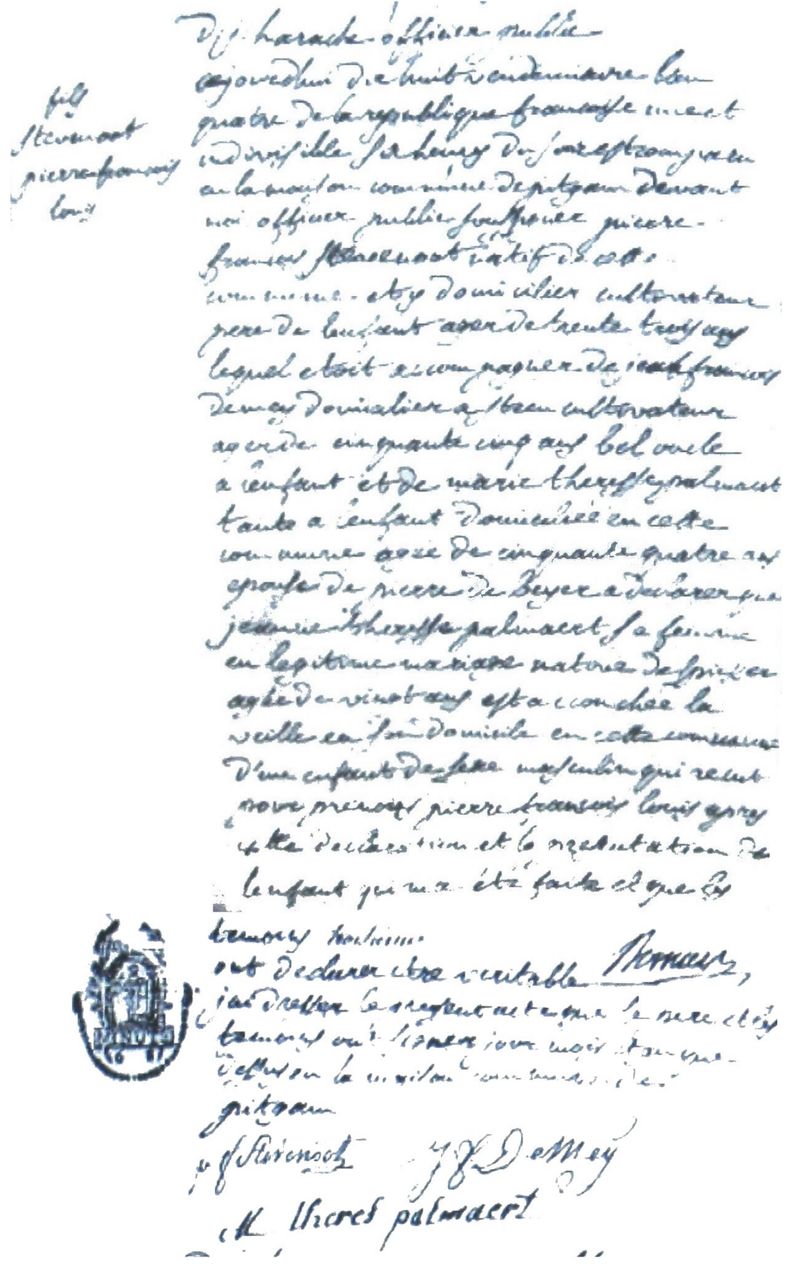 fils
stevenoot
pierre francois
louis
officier public
aujourdhui dix huit vendemiaire lan
quatre de la republique francoise une et
indivisible six heures du est comparu
en la maison commune de pitgam devant
moi officier public pierre
francois Stevenoot natif de cette
commune et y domicilier cultivateur
pere de lenfant ager de trente trois ans
lequel etoit accompagner de jean francois
demey domicilier a steen cultivateur
ager de cinquante cinq ans bel oncle
a lenfant et de marie theresse palmaert
tante a lenfant domiciliée en cette
commune agée de cinquante quatre ans
epouse de pierre de Beyer a declarer que
jeanne theresse palmaert sa femme
en legitime mariage native de
agée de vingt ans est accouchée la
veille en son domicile en cette commune
d'un enfant de sexe masculin qui recut
pour prenoms pierre francois louis apres
cette declaration et la presentation de
lenfant qui m'a été faite et que les
temoins
ont declarer être veritable
jai dresser le present acte que le pere et les
temoins ont signer jour mois et an que
dessus en la maison commune de
pitgam
p f Stevenoot J F DeMey
M theres palmaert